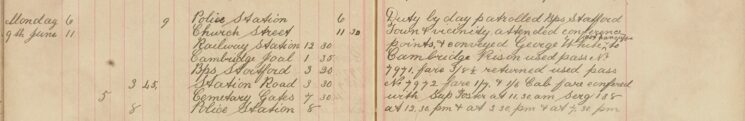 Monday 6 9 Police Station 6 Duty by day patrolled Bps Stortford
9th June 11 Church Street 11 30 Town & vicinity attended conference
Railway Station 12 30 points, & conveyed George White, to
Cambridge Gaol 1 35 Cambridge Prison used pass No
Bps Stortford 3 30 7971, fare 3/8½ returned used pass
3 45 Station Road 3 30 No 7972 fare 1/7, & 1/6 Cab fare confered
5 Cemetary Gates 7 30 with Sup Foster at 11.30 am Serg 188
8 Police Station 8 at 12.30 pm & at 3 30 pm & at 7.30 pm